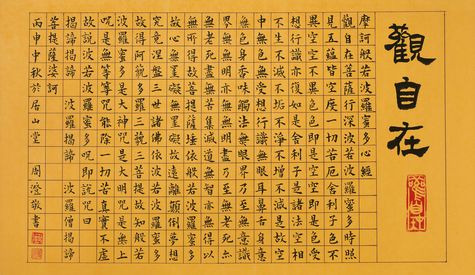 觀自在
觀自在
摩訶般若波羅蜜多心經
觀自在菩薩行深波若波羅蜜多時照
見五蘊皆空度一切苦厄舍利子色不
異空空不異色色即是空空即是色受
想行識亦復如是舍利子是諸法空相
不生不滅不垢不淨不增不減是故空
中無色無受想行識無眼耳鼻舌身意
無色身香味觸法無眼界乃至無意識
界無無明亦無無明盡乃至無老死亦
無老死盡無苦集滅道無智亦無得以
無所得故菩提薩埵依般若波羅蜜多
故心無罣礙無罣礙故遠離顛倒夢想
究竟涅盤三世諸佛依波若波羅蜜多
故得阿耨多羅三藐三菩提故知般若
波羅蜜多是大神咒是大明咒是無上
咒是無等等咒能除一切苦真實不虛
故說波若波羅蜜多咒即說咒曰
揭諦揭諦 波羅揭諦 波羅僧揭諦
菩提薩婆訶
丙申中秋於居山堂 周澄敬書